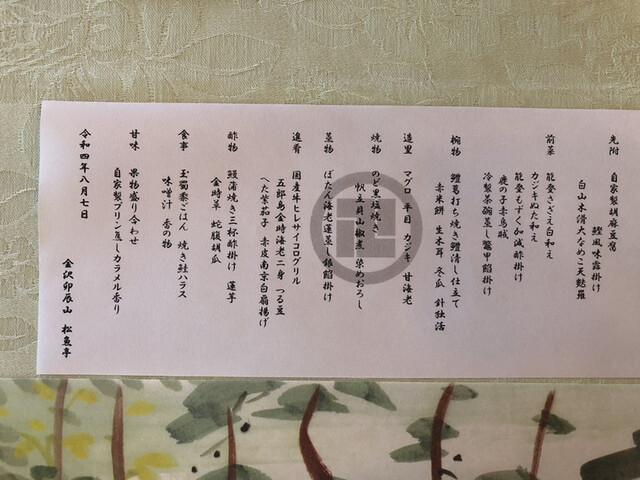 先附　自家製胡麻豆腐
鰹風味露掛け
白山木滑大なめこ天麩羅
前菜　能登さざえ白和え
カジキぬた和え
能登もずく加減酢掛け
鹿の子赤烏賊
冷製茶碗蒸し鼈甲餡掛け
椀物　鱧葛打ち焼き鱧清し仕立て
赤米餅　生木耳　冬瓜　針独活
造里　マグロ　平目　カジキ　甘海老
焼物　のど黒塩焼き
帆立貝山椒煮　染めおろし
蒸物　ぼたん海老蓮蒸し銀餡掛け
進肴　国産牛ヒレサイコログリル
五郎島金時海老二身　つる豆
へた紫茄子　赤皮南京白扇揚げ
酢物　鰻蒲焼き三杯酢掛け　蓮芋
金時草　蛇腹胡瓜
食事　玉蜀黍ごはん　焼き鮭ハラス
味噌汁　香の物
甘味　果物盛り合わせ
自家製プリン蒸しカラメル香り
令和四年八月七日
金沢卯辰山　松魚亭